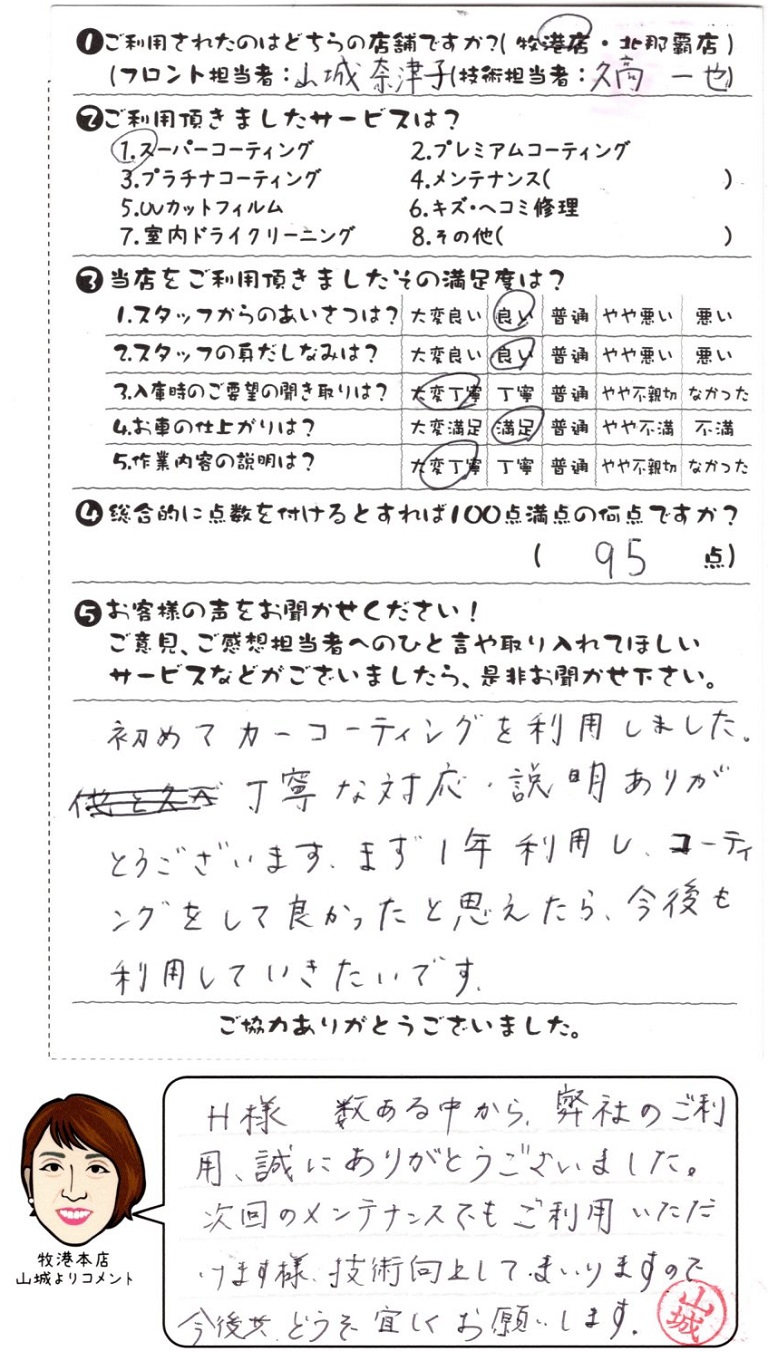 ❶ご利用されたのはどちらの店舗ですか?(牧港店・北那覇店)
(フロント担当者:山城奈津子(技術担当者:久高 一也)
❷ご利用頂きましたサービスは?
1.スーパーコーティング 2.プレミアムコーティング
3.プラチナコーティング 4.メンテナンス( )
5.UVカットフィルム 6.キズ・ヘコミ修理
7.室内ドライクリーニング 8.その他( )
❸当店をご利用頂きましたその満足度は?
1.スタッフからのあいさつは? 大変良い 良い 普通 やや悪い 悪い
2.スタッフの身だしなみは? 大変良い 良い 普通 やや悪い 悪い
3.入庫時のご要望の聞き取りは? 大変丁寧 丁寧 普通 やや不親切 なかった
4.お車の仕上がりは? 大変満足 満足 普通 やや不満 不満
5.作業内容の説明は? 大変丁寧 丁寧 普通 やや不親切 なかった
❹総合的に点数を付けるとすれば100点満点の何点ですか?
( 95 点)
❺お客様の声をお聞かせください!
ご意見、ご感想担当者へのひと言や取り入れてほしい
サービスなどがございましたら、是非お聞かせ下さい。
初めてカーコーティングを利用しました。
丁寧な対応・説明ありが
とうございます、まず1年利用し、コーティ
ングをして良かったと思えたら、今後も
利用していきたいです。
ご協力ありがとうございました。
H様 数ある中から、弊社のご利
用、誠にありがとうございました。
次回のメンテナンスでもご利用いただ
けます様、技術向上してまいりますので
今後共どうぞ宜しくお願いします。
山城
牧港本店
山城よりコメント